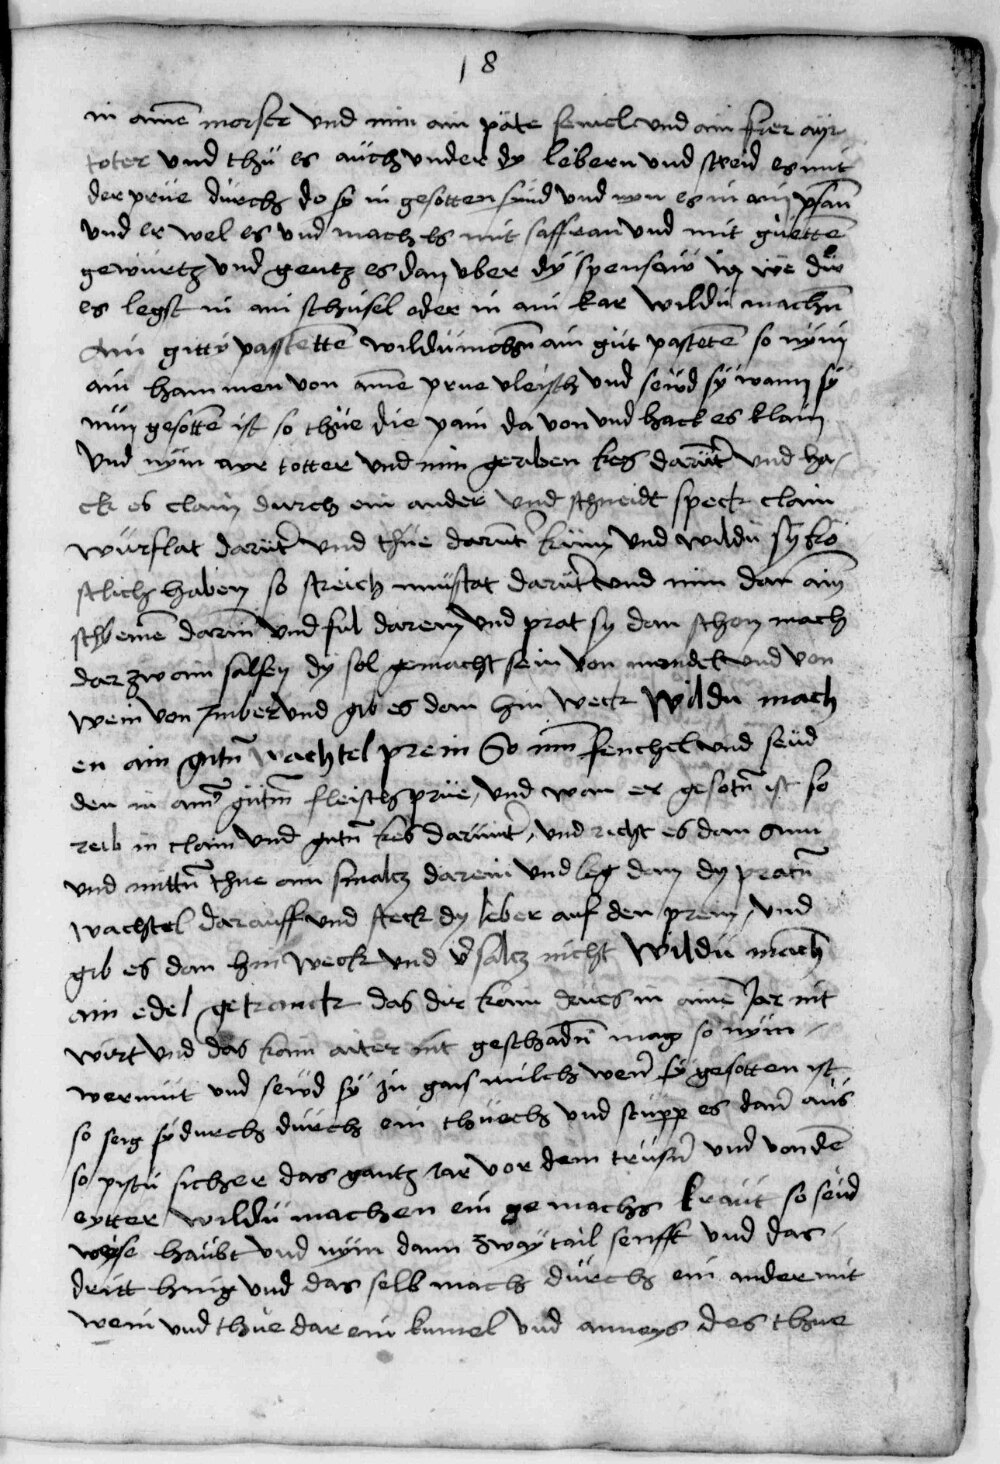 18
in aine morser vnd nim ain päte semel und ain frer ayr
toter vnd thü es aüch vnder dy lebern vnd streid es mit
der prüe dürch do sy in gesotten sind vnd nym es in ain pfan
vnd er wel es vnd mach es mit saffran vnd mit güette
gewürtz vnd geutz es dan vber dy spensaw in we du
es legst in ain schüsel oder in ain kar wildu machn
Ain gitty passtette wildu machn ain güt pastete so nym
ain hammen von aime prue vleisch vnd seüd sy wann sy
nün gesotte ist so thüe die pain da von vnd hack es klain
vnd nym ayr totter vnd nim geriben kes darütr vnd ha-
ck es clain dürch ein ander vnd schneidt speck clain
würflat darütr vnd thüe darütr küm vnd wildü sy kö
stlich haben so streich muscat darütr und nim dan ain
schbeine darin vnd ful darein vnd prat sy dan schon mach
dar zw ain salsen dy sol gemacht sein von mandel und von
wein von Imber vnd gib es dan hin weck Wildu mach
en ain gutn wachtel prein So nim fenchel vnd seüd
den in aimr gütn fleischprüe, vnd wan er gesotn ist so
reib in clain vnd gutn kes darüntr, vnd richt es dan ann
vnd mittn thue ain smalcz darein vnd leg dan dy pratn
wachtel darauff vnd steck dy leber auf den prein, vnd
gib es dan hin weck vnd vrsalcz nicht Wildü mach
ain edel getranck das dir kain drues in aime Jar nit
wirt vnd das kain aiter nit geschadn mag so nym
wermüt vnd seüd sy in gais milch wen sy gesotten ist
so seig sy durch dürch ein thüech vnd süpp es dan aüs
so pistu sicher das gantz iar vor dem trüsn vnd von de
eytter wildü machen ein gemachs kraüt so seüd
weyse haübt vnd nym dann zway tail senfft vnd das
dritt hönig vnd das selb mach dürch ein ander mit
wein vnd thüe dar ein kümel vnd anneys des thue